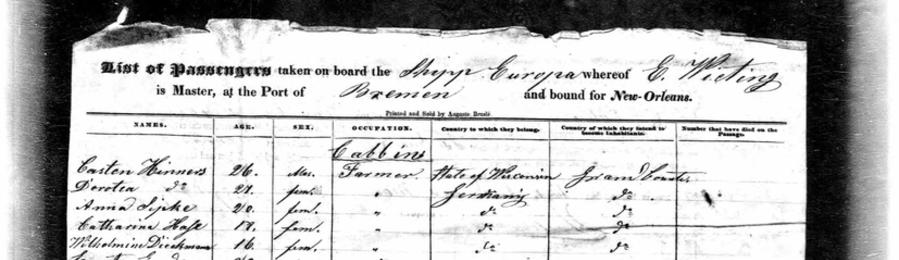 List of Passengers taken on board the Shipp Europa whereof E. Wieting
is Master, at the Port of Bremen and bound for New-Orleans.
Printed and Sold by Auguste Bruslé
NAMES. AGE. SEX. OCCUPATION. Country to which they belong. Country of which they intend to become inhabitants. Number that have died on the Passage.
Cabbins
Carsten Hinners 26. Mas. Farmer. State of Wisconsin
Dorotea do 21. fem. " Germany do
Anna 20. fem. " do do
Catharina Hase 17. fem. " do do
Wilhelmine Dieckmann 16. fem. " do do